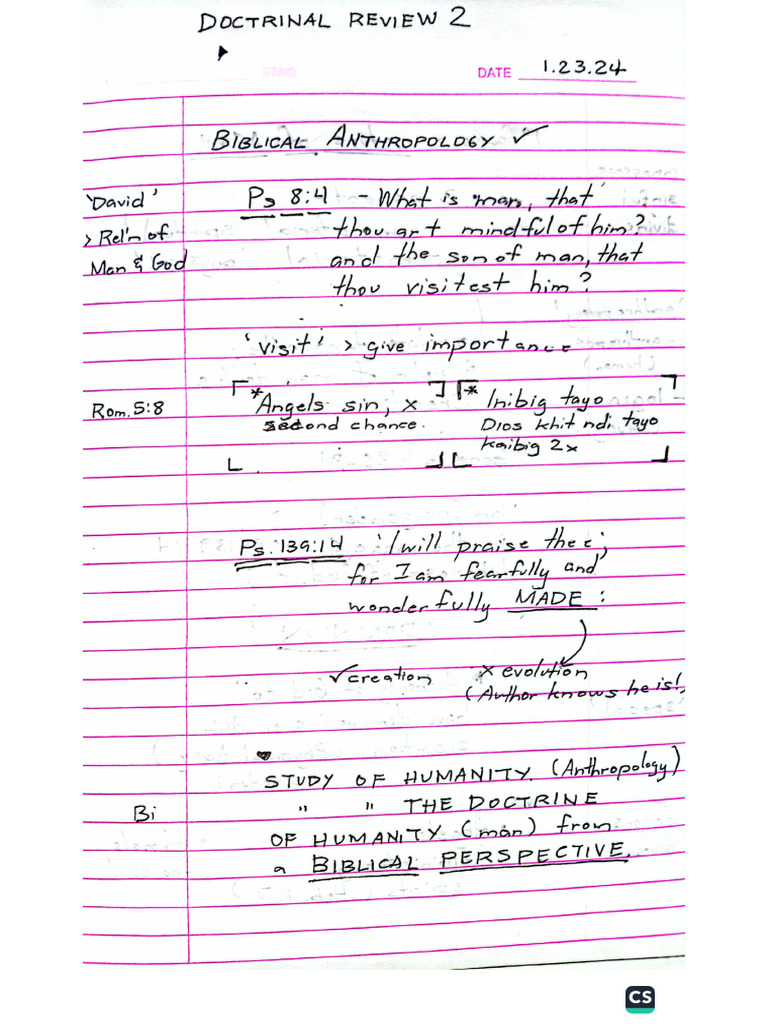 DOCTRINAL REVIEW 2
DATE 1.23.24
BIBLICAL ANTHROPOLOGY ✓
'David'
> Rel'n of
Man & God
Ps 8:4 - What is man, that
thou art mindful of him?
and the son of man, that
thou visitest him?
'visit' > give importance
Rom. 5:8
*Angels sin, x
second chance.
* Inibig tayo
Dios khit ndi tayo
kaibig 2x
Ps. 139:14 'I will praise thee;
for I am fearfully and
wonderfully MADE:
✓creation x evolution
(Author knows he is!)
STUDY OF HUMANITY. (Anthropology)
Bi
" " THE DOCTRINE
OF HUMANITY (man) from
a BIBLICAL PERSPECTIVE.
CS